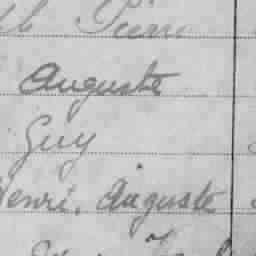 Pierre
Auguste
Guy
Henri, Auguste